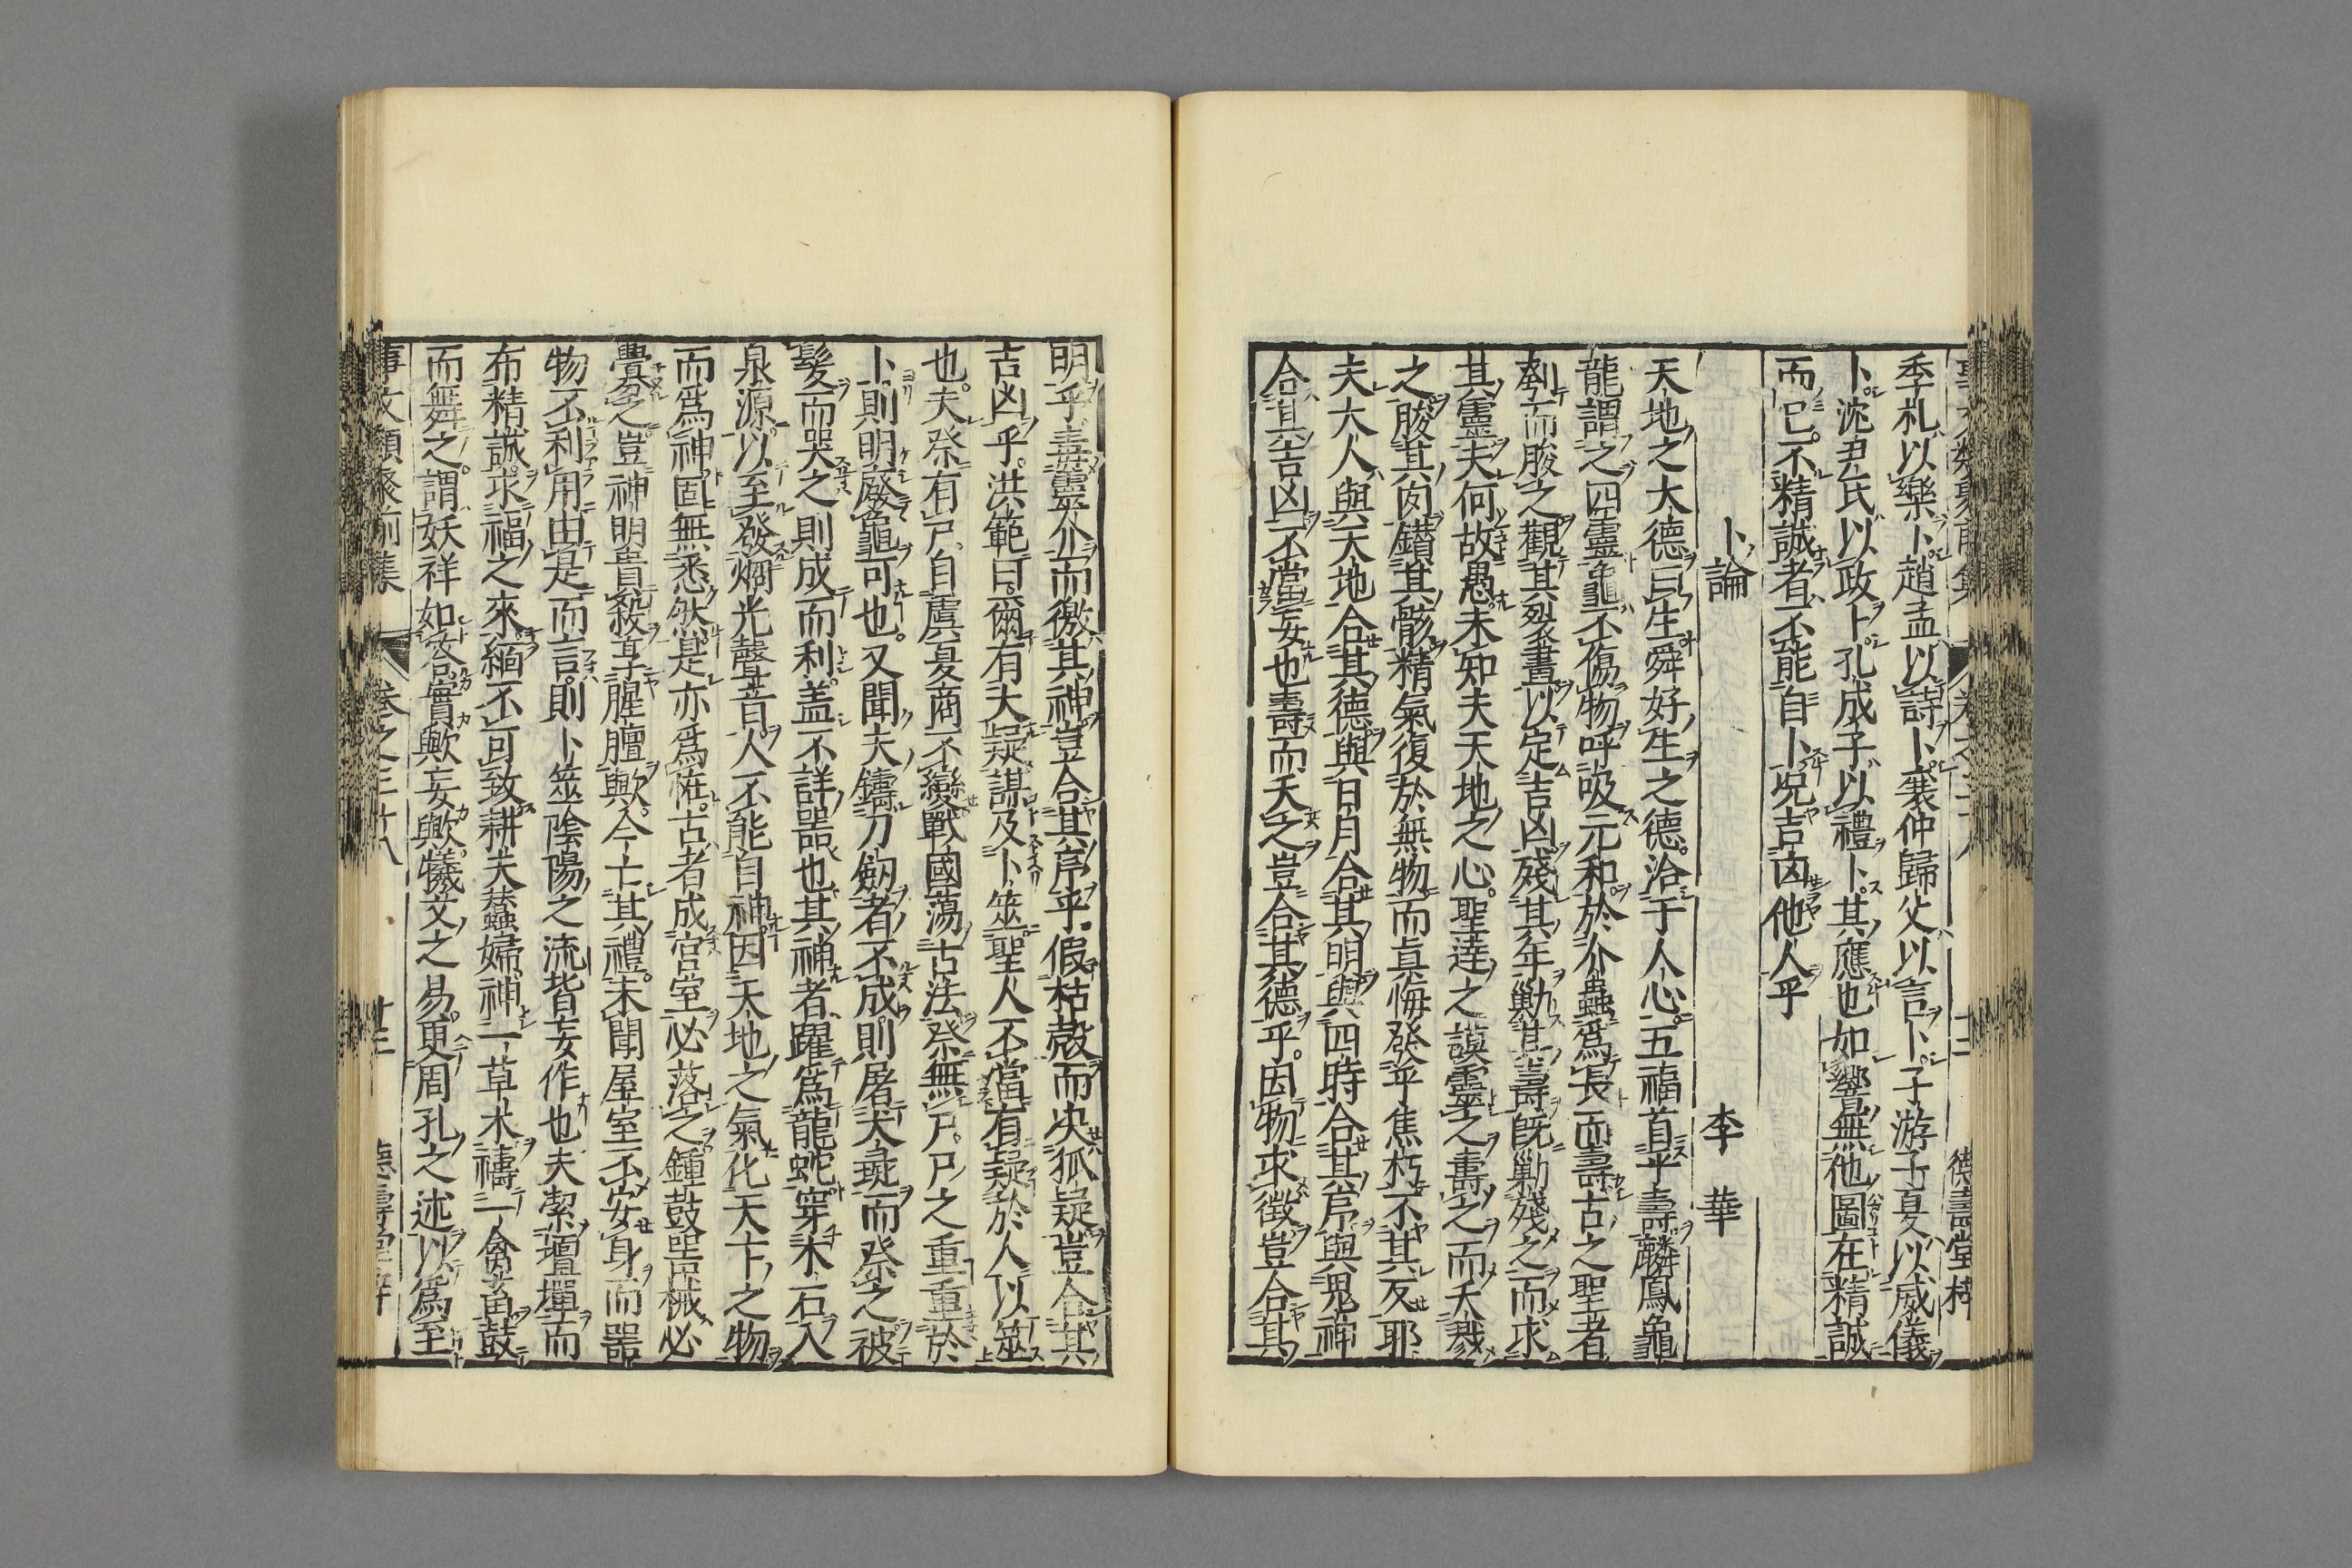 季札以樂卜趙孟以詩卜襄仲歸父以言卜子游子夏以威儀
卜沈尹氏以政卜孔成子以禮卜其應也如響無他圖在精誠
而已不精誠者不能自卜况吉凶他人乎
卜論 李華
天地之大德曰生舜好生之德洽于人心五福首乎壽麟鳳龜
龍謂之四靈龜不傷物呼吸元和於介蟲爲長而壽古之聖者
刳而朘之觀其裂畫以定吉凶殘其年勦其壽旣勦殘之而求
其靈夫何故愚未知夫天地之心聖達之謨靈之壽之而夭戮
之朘其肉鑚其骸精氣復於無物而貞悔發乎焦朽不其反耶
夫大人與天地合其德與日月合其明與四時合其序與鬼神
合其吉凶不當妄也壽而夭之豈合其德乎因物求徵豈合其
明乎毒靈介而徼其神豈合其序乎假枯殻而决狐疑豈合其
吉凶乎洪範曰爾有大疑謀及卜筮聖人不當有疑於人以筮
也夫祭有尸自虞夏商不變戰國蕩古法祭無尸尸之重重於
卜則明廢龜可也又聞夫鑄刀劒者不成則屠犬彘而祭之被
髮而哭之則成而利盖不詳噐也其神者躍爲龍蛇穿木石入
泉源以至發烱光聲音人不能自神因天地之氣化天下之物
而爲神固無悉然是亦爲恠古者成宫室必落之鍾鼓噐械必
釁之豈神明貴殺享腥膻歟今亡其禮未聞屋室不安身而噐
物不利用由是而言則卜筮隂陽之流皆妄作也夫潔壇墠而
布精誠求福之來緬不可致耕夫蠶婦神一草木禱一禽畜鼓
而舞之謂妖祥如答實歟妄歟犧文之易更周孔之述以爲至
事文類聚前集 卷之三十八 十三